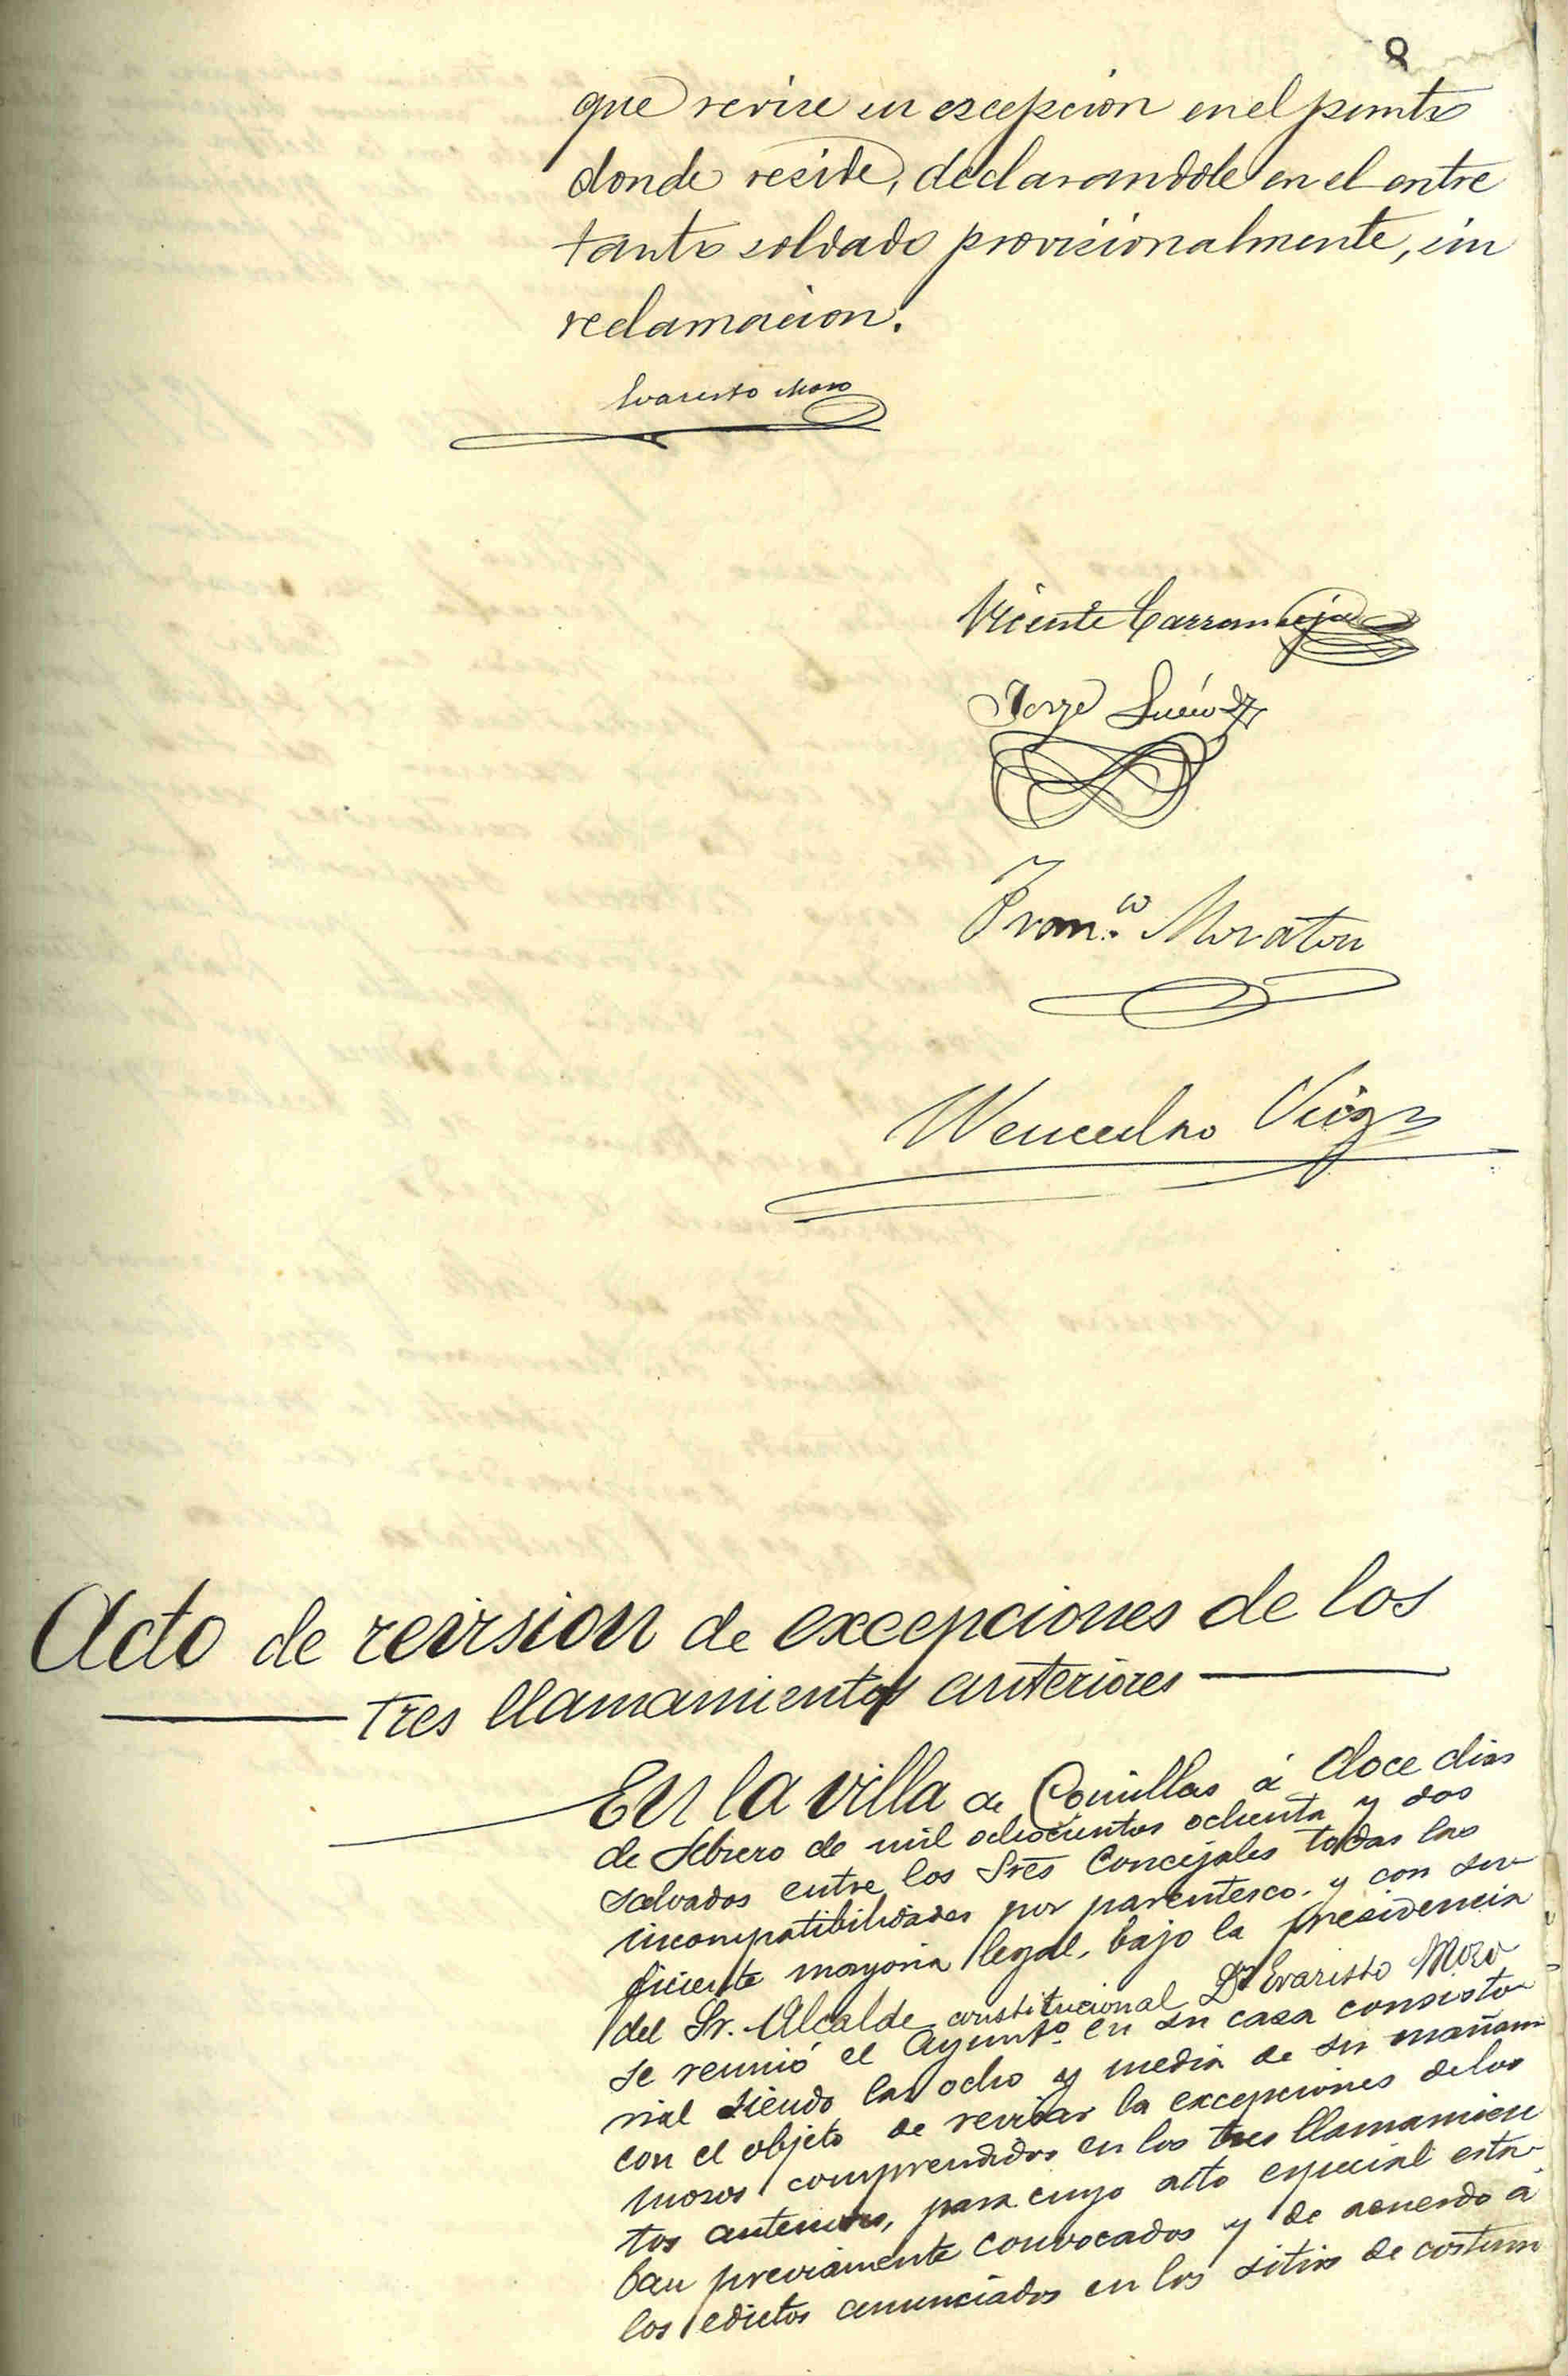 8
que revise su escepcion en el punto
donde reside, declarandole en el entre
tanto soldado provisionalmente, sin
reclamacion.
Evaristo Moro
Vicente Carranceja
Jorge
Fran.co Moraton
Wenceslao
Acto de reivsion de excepciones de los
tres llamamientos anteriores
En la villa de Comillas á doce dias
de Febrero de mil ochocientos ochenta y dos
salvados entre los Sres Concejales todas las
incompatibilidades por parentesco. y con su
ficiente mayoria legal, bajo la presidencia
del Sr. Alcalde constitucional Dn Evaristo Moro
se reunió el Ayunto. en su casa consisto
rial siendo las ocho y media de su mañana
con el objeto de revisar la excepciones de los
mozos comprendidos en los tres llamamien
tos anteriores, para cuyo acto especial esta
ban previamente convocados y de acuerdo á
los edictos anunciados en los sitios de costum